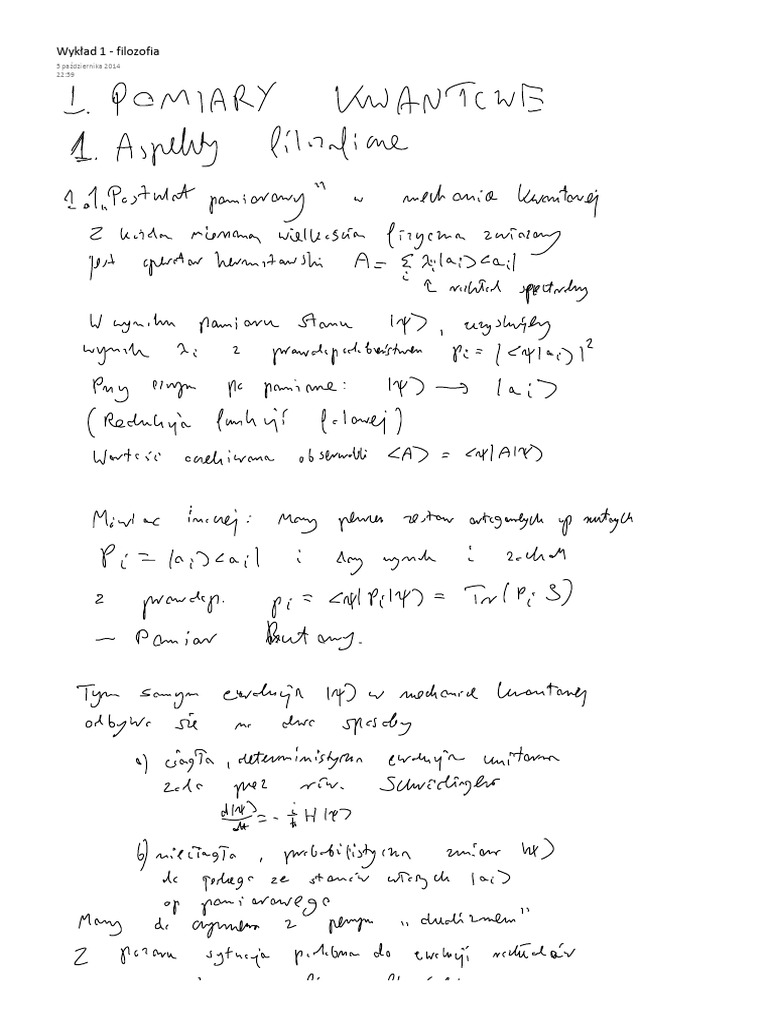 Wykład 1 - filozofia
5 października 2014
22:59
I. POMIARY KWANTOWE
1. Aspekty filozoficzne
1.1. „Postulat pomiarowy" w mechanice kwantowej
Z każdą mierzoną wielkością fizyczną związany
jest operator hermitowski A = Σ_i λ_i |a_i><a_i|
↑ rozkład spektralny
W wyniku pomiaru stanu |ψ>, uzyskujemy
wynik λ_i z prawdopodobieństwem p_i = |<ψ|a_i>|²
Przy czym po pomiarze: |ψ> → |a_i>
(Redukcja funkcji falowej)
Wartość oczekiwana obserwabli <A> = <ψ|A|ψ>
Mówiąc inaczej: Mamy pewien zestaw ortogonalnych op rzutowych
P_i = |a_i><a_i| i dany wynik i zachodzi
z prawdop. p_i = <ψ|P_i|ψ> = Tr(P_i ρ)
— Pomiar Rzutowy.
Tym samym ewolucja |ψ> w mechanice kwantowej
odbywa się na dwa sposoby
a) ciągła, deterministyczna ewolucja unitarna
zada przez rów. Schrödingera
d|ψ>/dt = -i/ħ H|ψ>
b) nieciągła, probabilistyczna zmiana |ψ>
do jednego ze stanów własnych |a_i>
op pomiarowego
Mamy do czynienia z pewnym „dualizmem"
Z pozoru sytuacja podobna do ewolucji